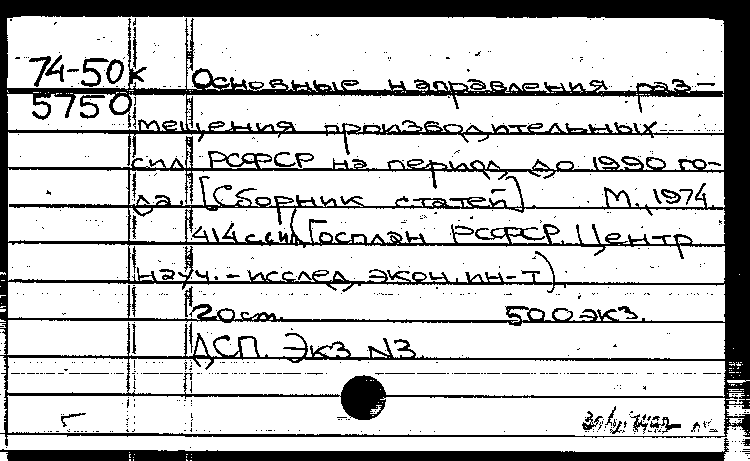 74-50к Основные направления раз-
5750
мещения производительных
сил РСФСР на период до 1990 го-
да. [Сборник статей]. М., 1974.
414 с. (Госплан РСФСР. Центр
науч.-исслед. экон. ин-т).
20 см. 500 экз.
ДСП. Экз. N3.